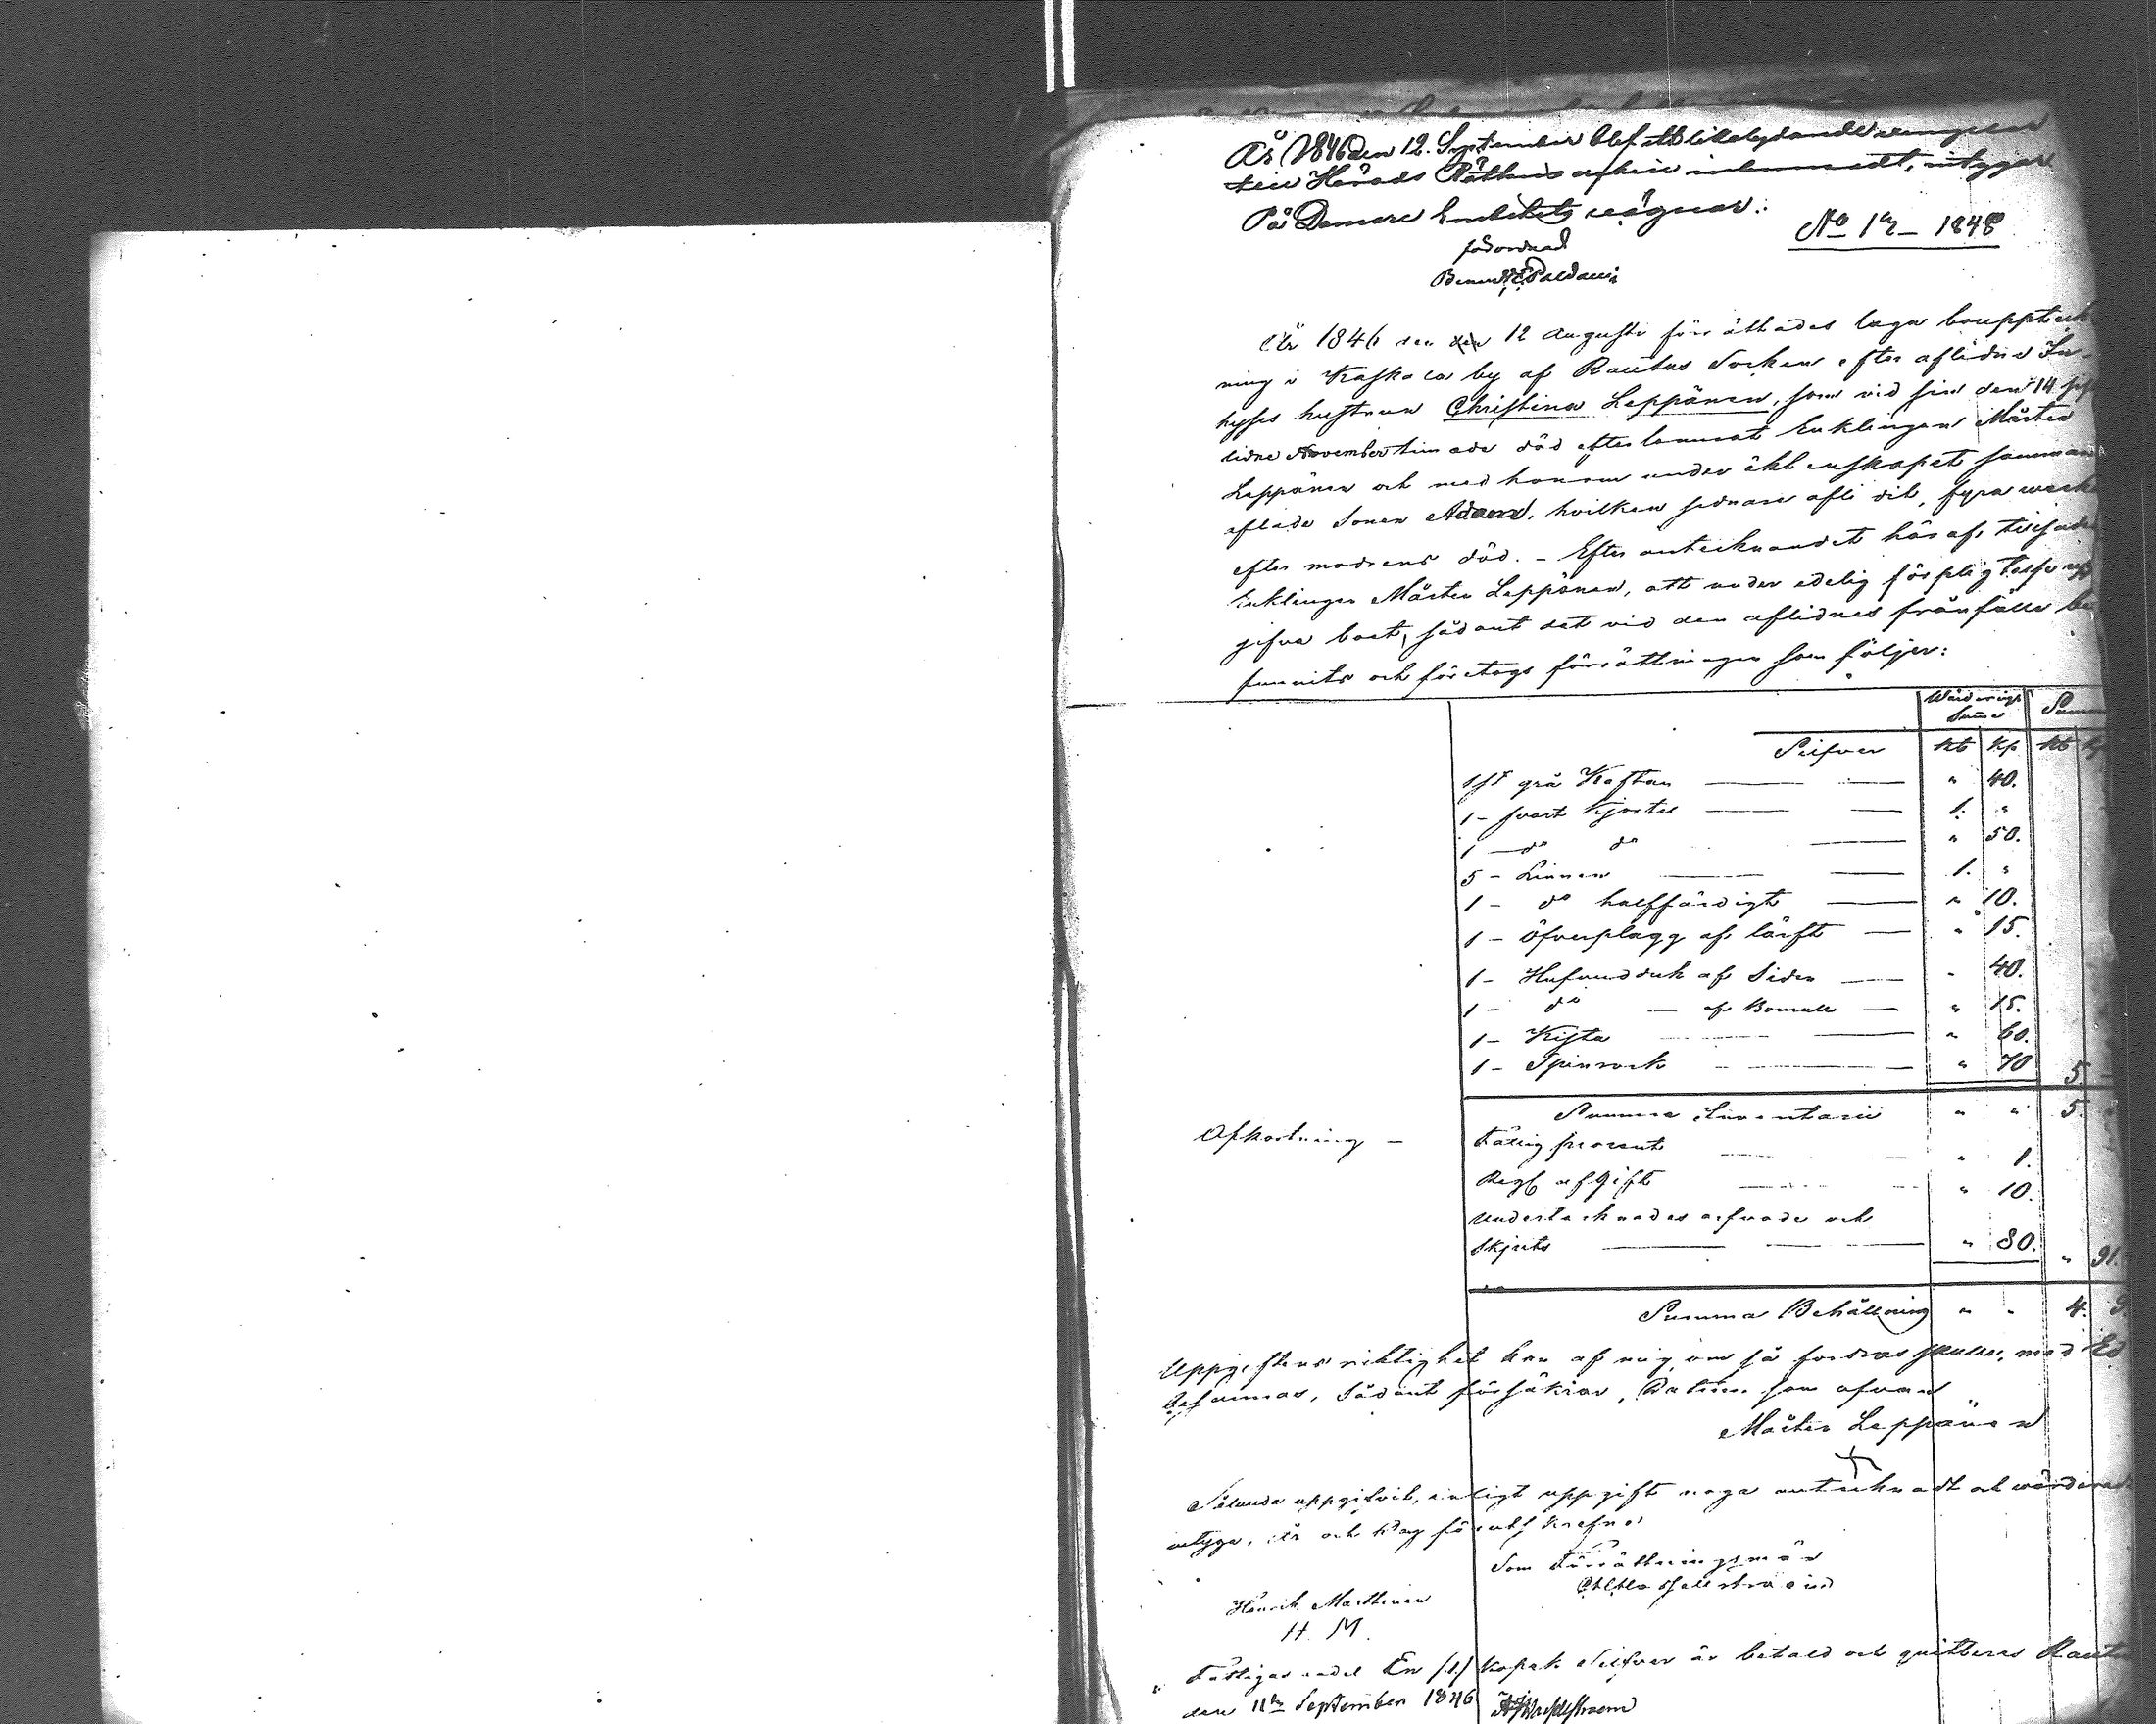 År 1846 den 12. September blef ett likalydande exemplar
till Härads Rättens arkiv inlemnadt, intygar
På Domare Embetets vägnar:
förordnad
No 12 – 1848
År 1846 den 12 Augusti förrättades laga bouppteck
ning i Kaskala by af Rautus Socken efter aflidne In-
hyses hustrun Christina Leppänen, som vid sin den 14
lidne November timade död efterlemnat Enklingen Mårten
Leppänen och med honom under äktenskapet samman
aflade Sonen Adam, hvilken sednare aflidit, fyra weck
efter modrens död. – Efter antecknandet häraf, tillsades
Enklingen Mårten Leppänen, att under edelig förpligtelse upp
gifva boet, sådant det vid den aflidnes frånfälle be
funnits och företogs förrättningen som följer:
Värderings Summa
Silfver Rb Kp Rb
1 st grå Kaftan " 40.
1 – svart Kjortel 1. "
1 – do do " 50.
5 – Linnen 1. "
1 – do halffärdigt " 10.
1 – Öfverplagg af lärft " 15.
1 – Hufvudduk af Siden " 40.
1 – do – af Bomull " 15.
1 – Kista " 60.
1 – Spinrock " 70 5. –
Summa Inventarii " " 5.
Afkortning – Fattig procent " 1.
Regl afgift " 10.
Undertecknades arfvode och
skjuts " 80. " 91.
Summa Behållning " " 4. 9
Uppgiftens riktighet kan af mig, om så fordras skulle, med Ed
besannas, sådant försäkras, Datum som ofvan
Mårten Leppänen
Sålunda uppgifvit, enligt uppgift noga antecknadt och värderadt
intyga, år och dag förutskrefne
Som Förrättningsmän
Henrik Marttinen
H. M.
Fattigas andel En (1) Kopek Silfver är betald och quitteras Rautus
den 11te September 1846